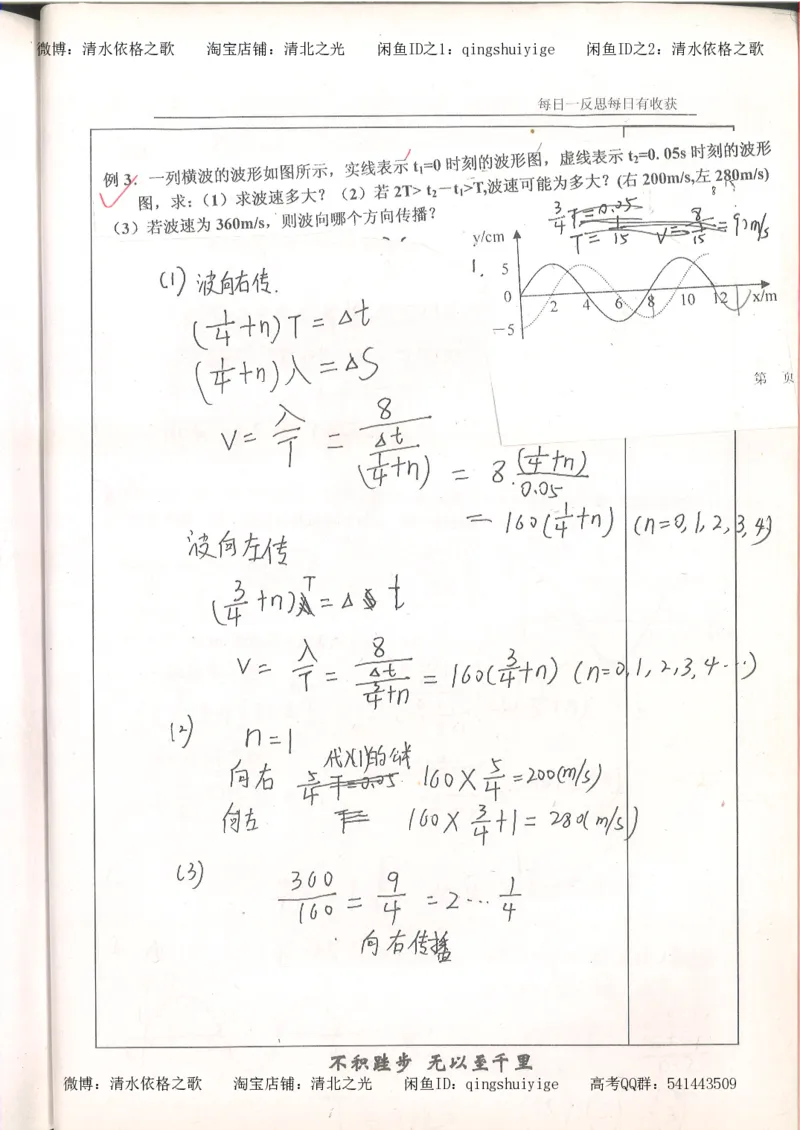 微博：清水依格之歌 淘宝店铺：清北之光 闲鱼ID之1：qingshuiyige 闲鱼ID之2：清水依格之歌
每日一反思每日有收获
例 3．一列横波的波形如图所示，实线表示 t₁=0 时刻的波形图，虚线表示 t₂=0.05s 时刻的波形
图，求：（1）求波速多大？（2）若 2T> t₂－t₁>T,波速可能为多大？(右 200m/s,左 280m/s)
（3）若波速为 360m/s，则波向哪个方向传播？
3/4 T=0.05
T= 1/15 V= 8/(1/15) =
y/cm
5
0
－5
2 4 6 8 10 12 x/m
第 页
(1) 波向右传.
(1/4+n)T=Δt
(1/4+n)入=ΔS
V= 入/T = 8/(Δt/(1/4+n)) = 8·(1/4+n)/0.05
= 160(1/4+n) (n=0,1,2,3,4)
波向左传
(3/4+n)T=Δt
V= 入/T = 8/(Δt/(3/4+n)) = 160(3/4+n) (n=0,1,2,3,4…)
(2) n=1
代入(1)的公式
向右 5/4 T=0.05 160×5/4=200(m/s)
向左 160×3/4+1=280(m/s)
(3)
360/160 = 9/4 =2…1/4
向右传播
不积跬步 无以至千里
微博：清水依格之歌 淘宝店铺：清北之光 闲鱼ID：qingshuiyige 高考QQ群：541443509